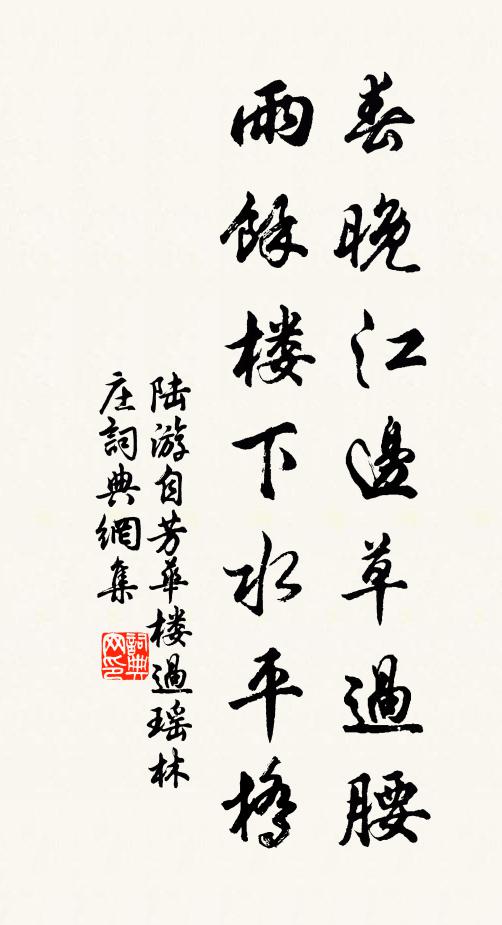 春晚江邊草過腰
雨餘楼下水平橋
陆游自芳華楼過瑶林
庄詞典網集
詞典网印